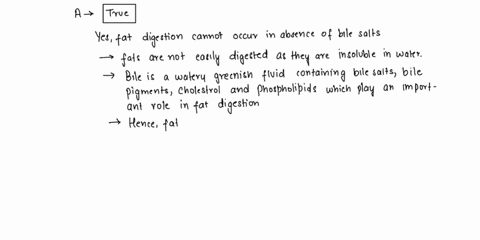 A → True
Yes, fat digestion cannot occur in absence of bile salts
→ fats are not easily digested as they are insoluble in water.
→ Bile is a watery greenish fluid containing bile salts, bile
pigments, cholestrol and phospholipids which play an import-
ant role in fat digestion
→ Hence, fat